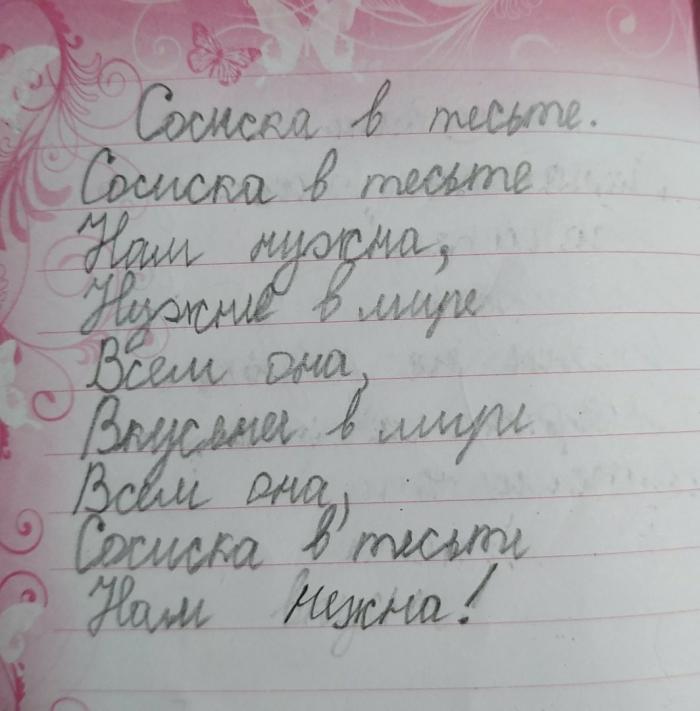 Сосиска в тесьте.
Сосиска в тесьте
Нам нужна,
Нужние в мире
Всем она,
Вкусьней в мире
Всем она,
Сосиска в тесьте
Нам нужна!